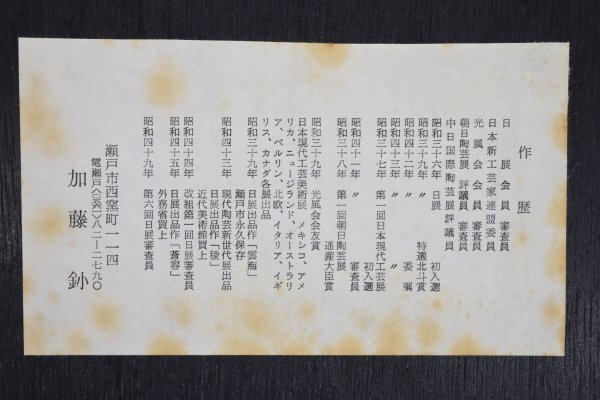 作歴
日展会員 審査員
日本新工芸家連盟 委員
光風会会員 審査員
朝日陶芸展 評議員 審査員
中日国際陶芸展 評議員
昭和三十六年 日展 初入選
昭和三十九年 〃 特選北斗賞
昭和四十二年 〃 委嘱
昭和四十三年 〃
昭和三十七年 第一回日本現代工芸展 初入選
昭和四十一年 〃 審査員
昭和三十八年 第一回朝日陶芸展 通産大臣賞
昭和三十九年 光風会会友賞
日本現代工芸美術展、メキシコ、アメ
リカ、ニュージランド、オーストラリ
ア、ベルリン、北欧、イタリア、イギ
リス、カナダ各展出品
昭和三十九年 日展出品作「雲海」
瀬戸市永久保存
昭和四十三年 現代陶芸新世代展出品
日展出品作「稜」
近代美術館買上
昭和四十四年 改組第一回日展審査員
昭和四十五年 日展出品作「蒼容」
外務省買上
昭和四十九年 第六回日展審査員
瀬戸市西窯町一一四
電瀬戸(〇五六一)八二ー二七九〇
加藤鈔